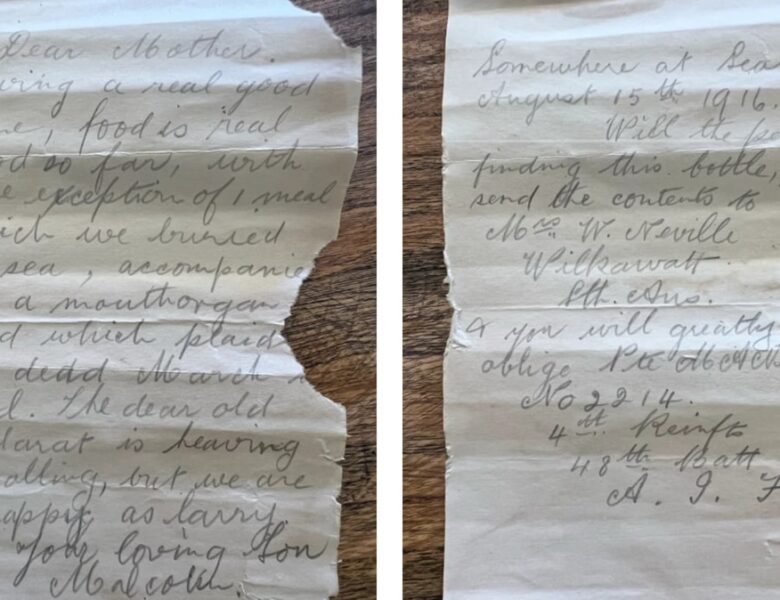 Dear Mother.
ving a real good
ne, food is real
od so far, with
e exception of 1 meal
ich we buried
sea, accompanie
a mouthorgan
d which plaid
dedd March
d. The dear old
larat is heaving
olling, but we are
appy as larry
Your loving Son
Malcolm.
Somewhere at Sea
August 15th 1916.
Will the pe
finding this bottle,
send the contents to
Mrs W. Neville
Wilkawatt.
Sth. Aus.
& you will greatly
oblige Pte M A
No 2214.
4th Reinfts
48th Batt
A. I. F